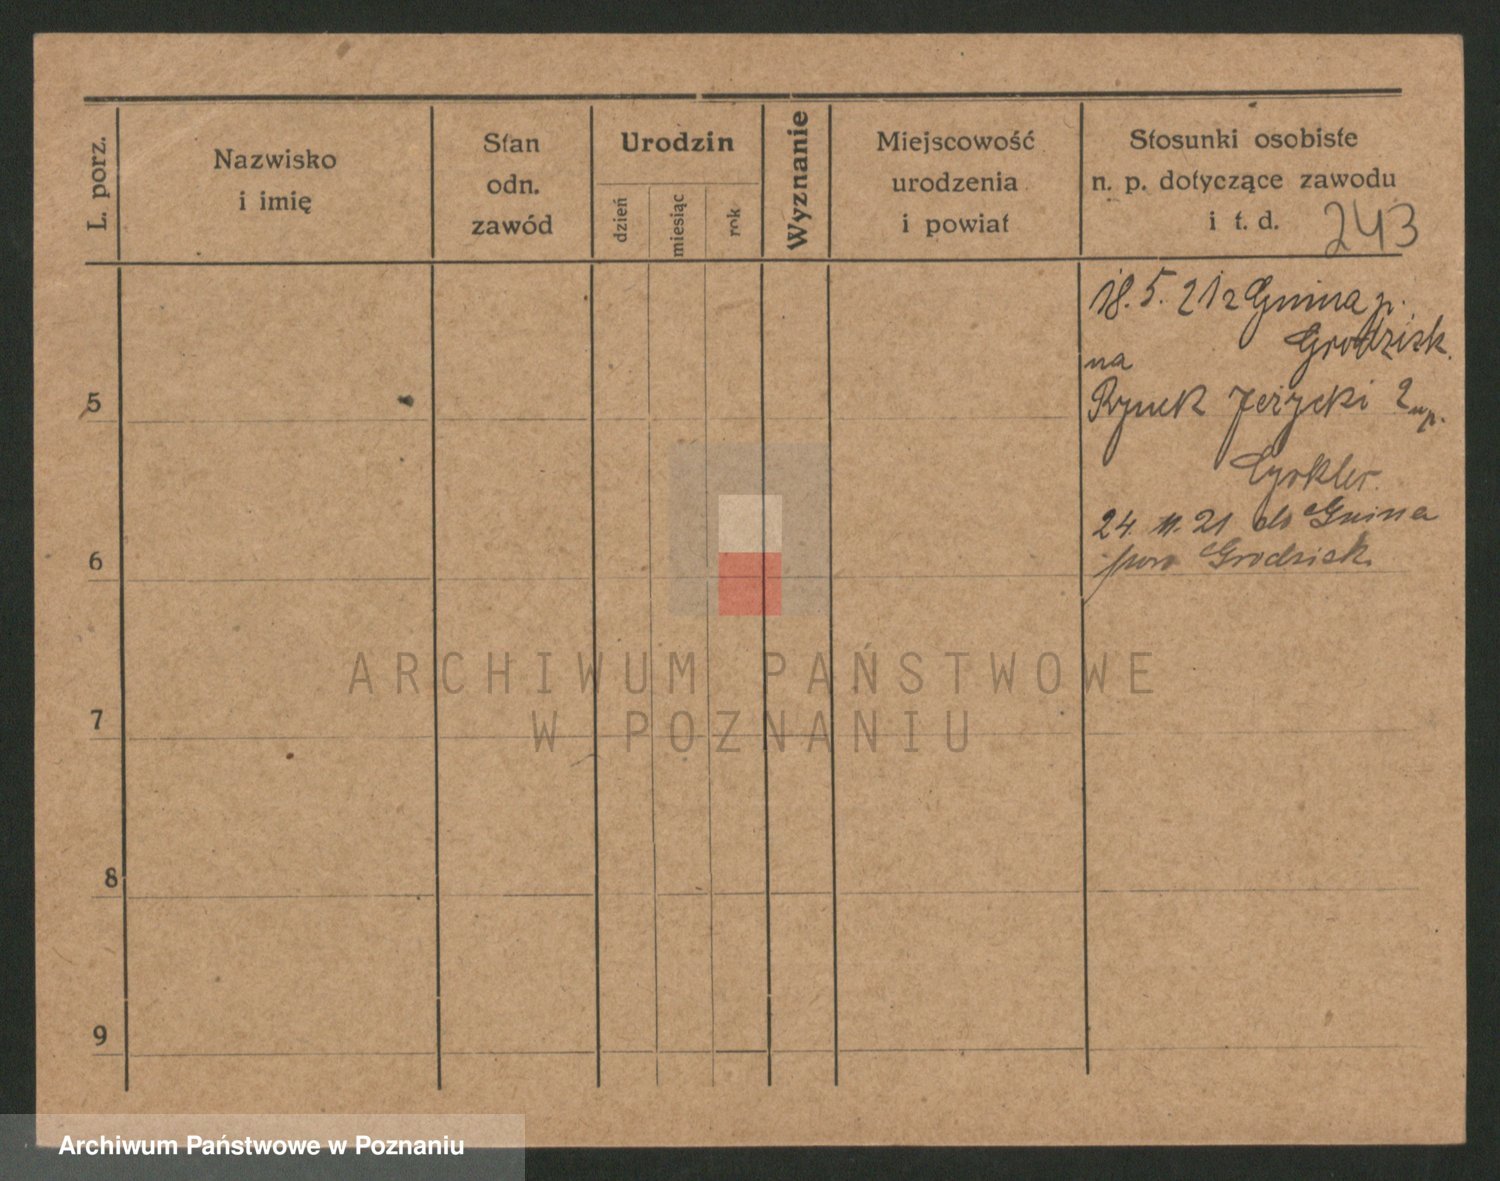 L. porz.
Nazwisko
i imię
Stan
odn.
zawód
Urodzin
dzień
miesiąc
rok
Wyznanie
Miejscowość
urodzenia
i powiat
Stosunki osobiste
n. p. dotyczące zawodu
i t. d.
243
18. 5. 21 z Gmina p.
Grodzisk.
na
Rynek Jeżycki 2
24. 11. 21 do Gmina
pow Grodzisk.
5
6
7
8
9
ARCHIWUM PAŃSTWOWE
W POZNANIU
Archiwum Państwowe w Poznaniu